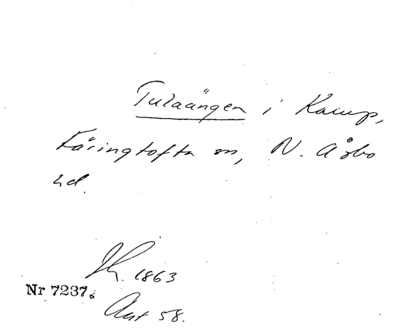 Tulaängen i Karup,
Färingtofta sn, N. Åsbo
hd.
1863
Nr 7237.
Ant 58.